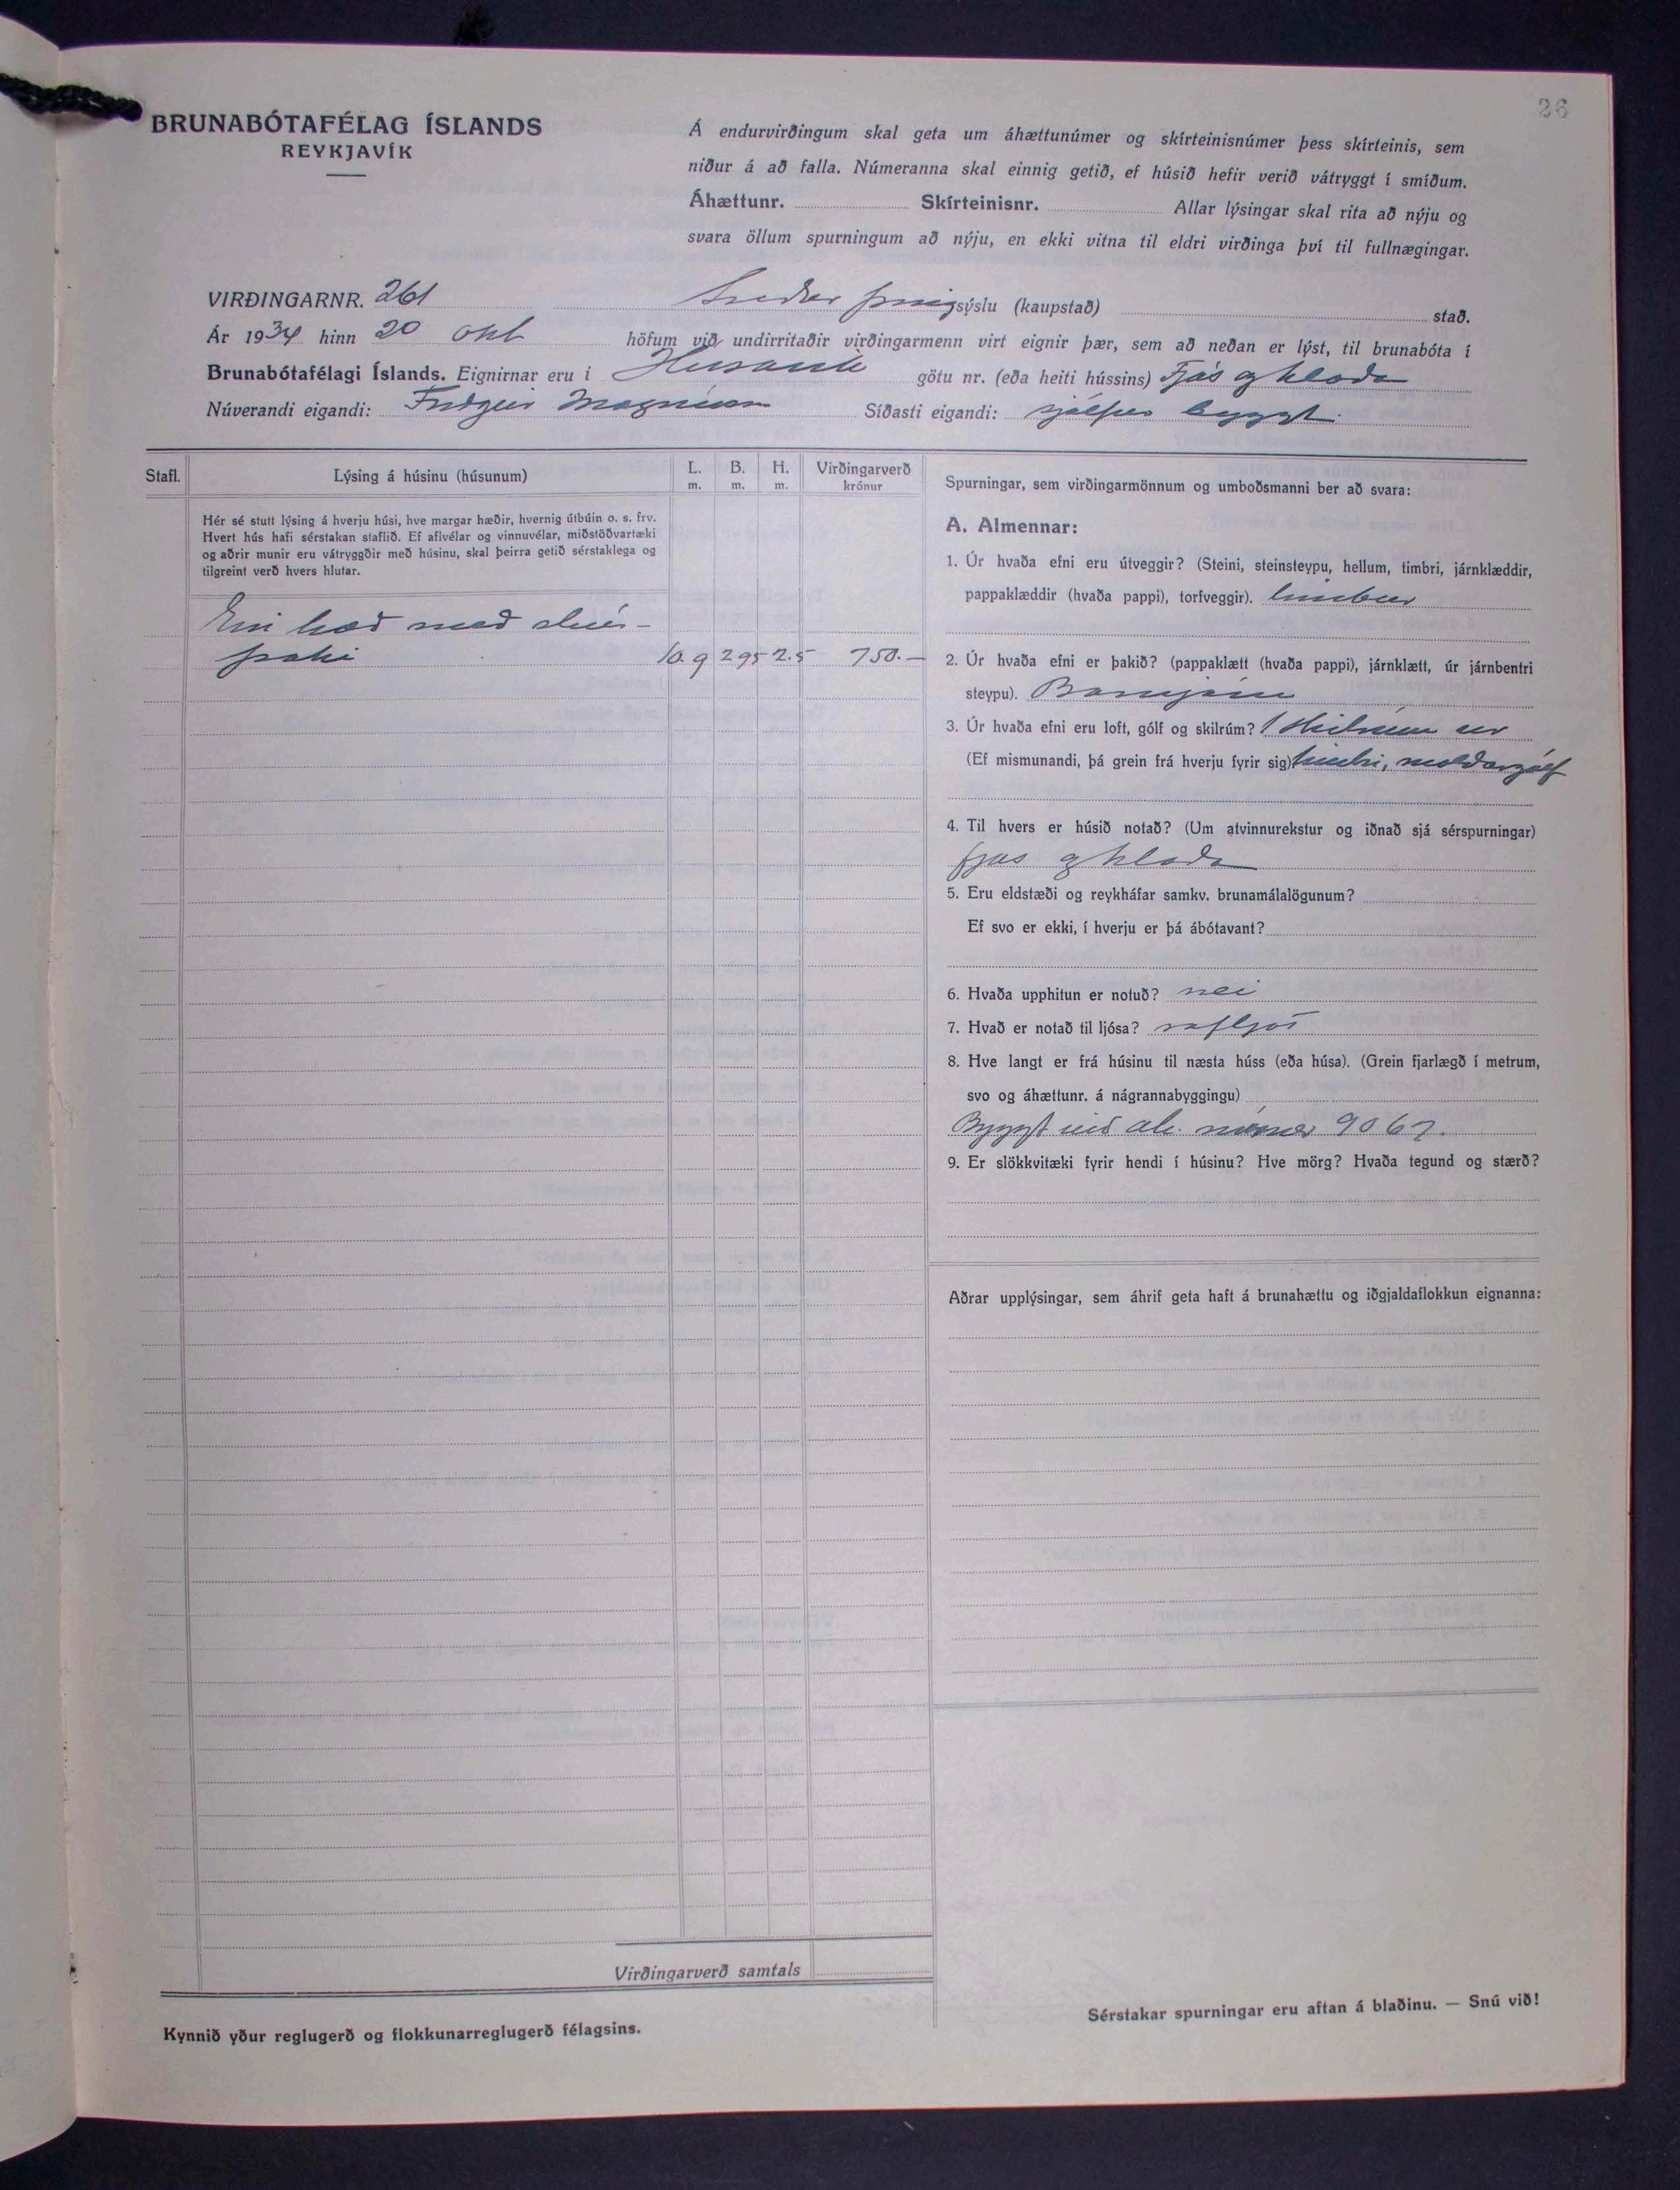 26
BRUNABÓTAFÉLAG ÍSLANDS
REYKJAVÍK
Á endurvirðingum skal geta um áhættunúmer og skírteinisnúmer þess skírteinis, sem
niður á að falla. Númeranna skal einnig getið, ef húsið hefir verið vátryggt í smíðum.
Áhættunr. Skírteinisnr. Allar lýsingar skal rita að nýju og
svara öllum spurningum að nýju, en ekki vitna til eldri virðinga því til fullnægingar.
VIRÐINGARNR. 261 Suður þing sýslu (kaupstað) stað.
Ár 1934 hinn 20 okt höfum við undirritaðir virðingarmenn virt eignir þær, sem að neðan er lýst, til brunabóta í
Brunabótafélagi Íslands. Eignirnar eru í Húsavík götu nr. (eða heiti hússins) Fjós og hlaða
Núverandi eigandi: Friðgeir Magnússon Síðasti eigandi: sjálfur byggt
Stafl. Lýsing á húsinu (húsunum) L. m. B. m. H. m. Virðingarverð krónur
Hér sé stutt lýsing á hverju húsi, hve margar hæðir, hvernig útbúin o. s. frv.
Hvert hús hafi sérstakan staflið. Ef aflvélar og vinnuvélar, miðstöðvartæki
og aðrir munir eru vátryggðir með húsinu, skal þeirra getið sérstaklega og
tilgreint verð hvers hlutar.
Ein hæð með skúr-
þaki 10.9 2 95 2.5 750.—
Spurningar, sem virðingarmönnum og umboðsmanni ber að svara:
A. Almennar:
1. Úr hvaða efni eru útveggir? (Steini, steinsteypu, hellum, timbri, járnklæddir,
pappaklæddir (hvaða pappi), torfveggir). timbur
2. Úr hvaða efni er þakið? (pappaklætt (hvaða pappi), járnklætt, úr járnbentri
steypu). Bárujárn
3. Úr hvaða efni eru loft, gólf og skilrúm? 1 skilrúm úr
(Ef mismunandi, þá grein frá hverju fyrir sig) timbri, moldargólf
4. Til hvers er húsið notað? (Um atvinnurekstur og iðnað sjá sérspurningar)
fjós og hlaða
5. Eru eldstæði og reykháfar samkv. brunamálalögunum?
Ef svo er ekki, í hverju er þá ábótavant?
6. Hvaða upphitun er notuð? nei
7. Hvað er notað til ljósa? rafljós
8. Hve langt er frá húsinu til næsta húss (eða húsa). (Grein fjarlægð í metrum,
svo og áhættunr. á nágrannabyggingu)
Byggt við áh. númer 9067.
9. Er slökkvitæki fyrir hendi í húsinu? Hve mörg? Hvaða tegund og stærð?
Aðrar upplýsingar, sem áhrif geta haft á brunahættu og iðgjaldaflokkun eignanna:
Virðingarverð samtals
Kynnið yður reglugerð og flokkunarreglugerð félagsins.
Sérstakar spurningar eru aftan á blaðinu. — Snú við!